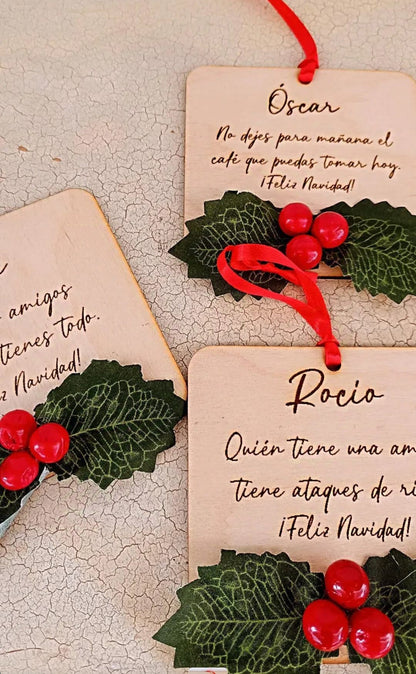 Óscar
No dejes para mañana el
café que puedas tomar hoy.
¡Feliz Navidad!
amigos
tienes todo.
Navidad!
Rocío
Quién tiene una
tiene ataques de
¡Feliz Navidad!